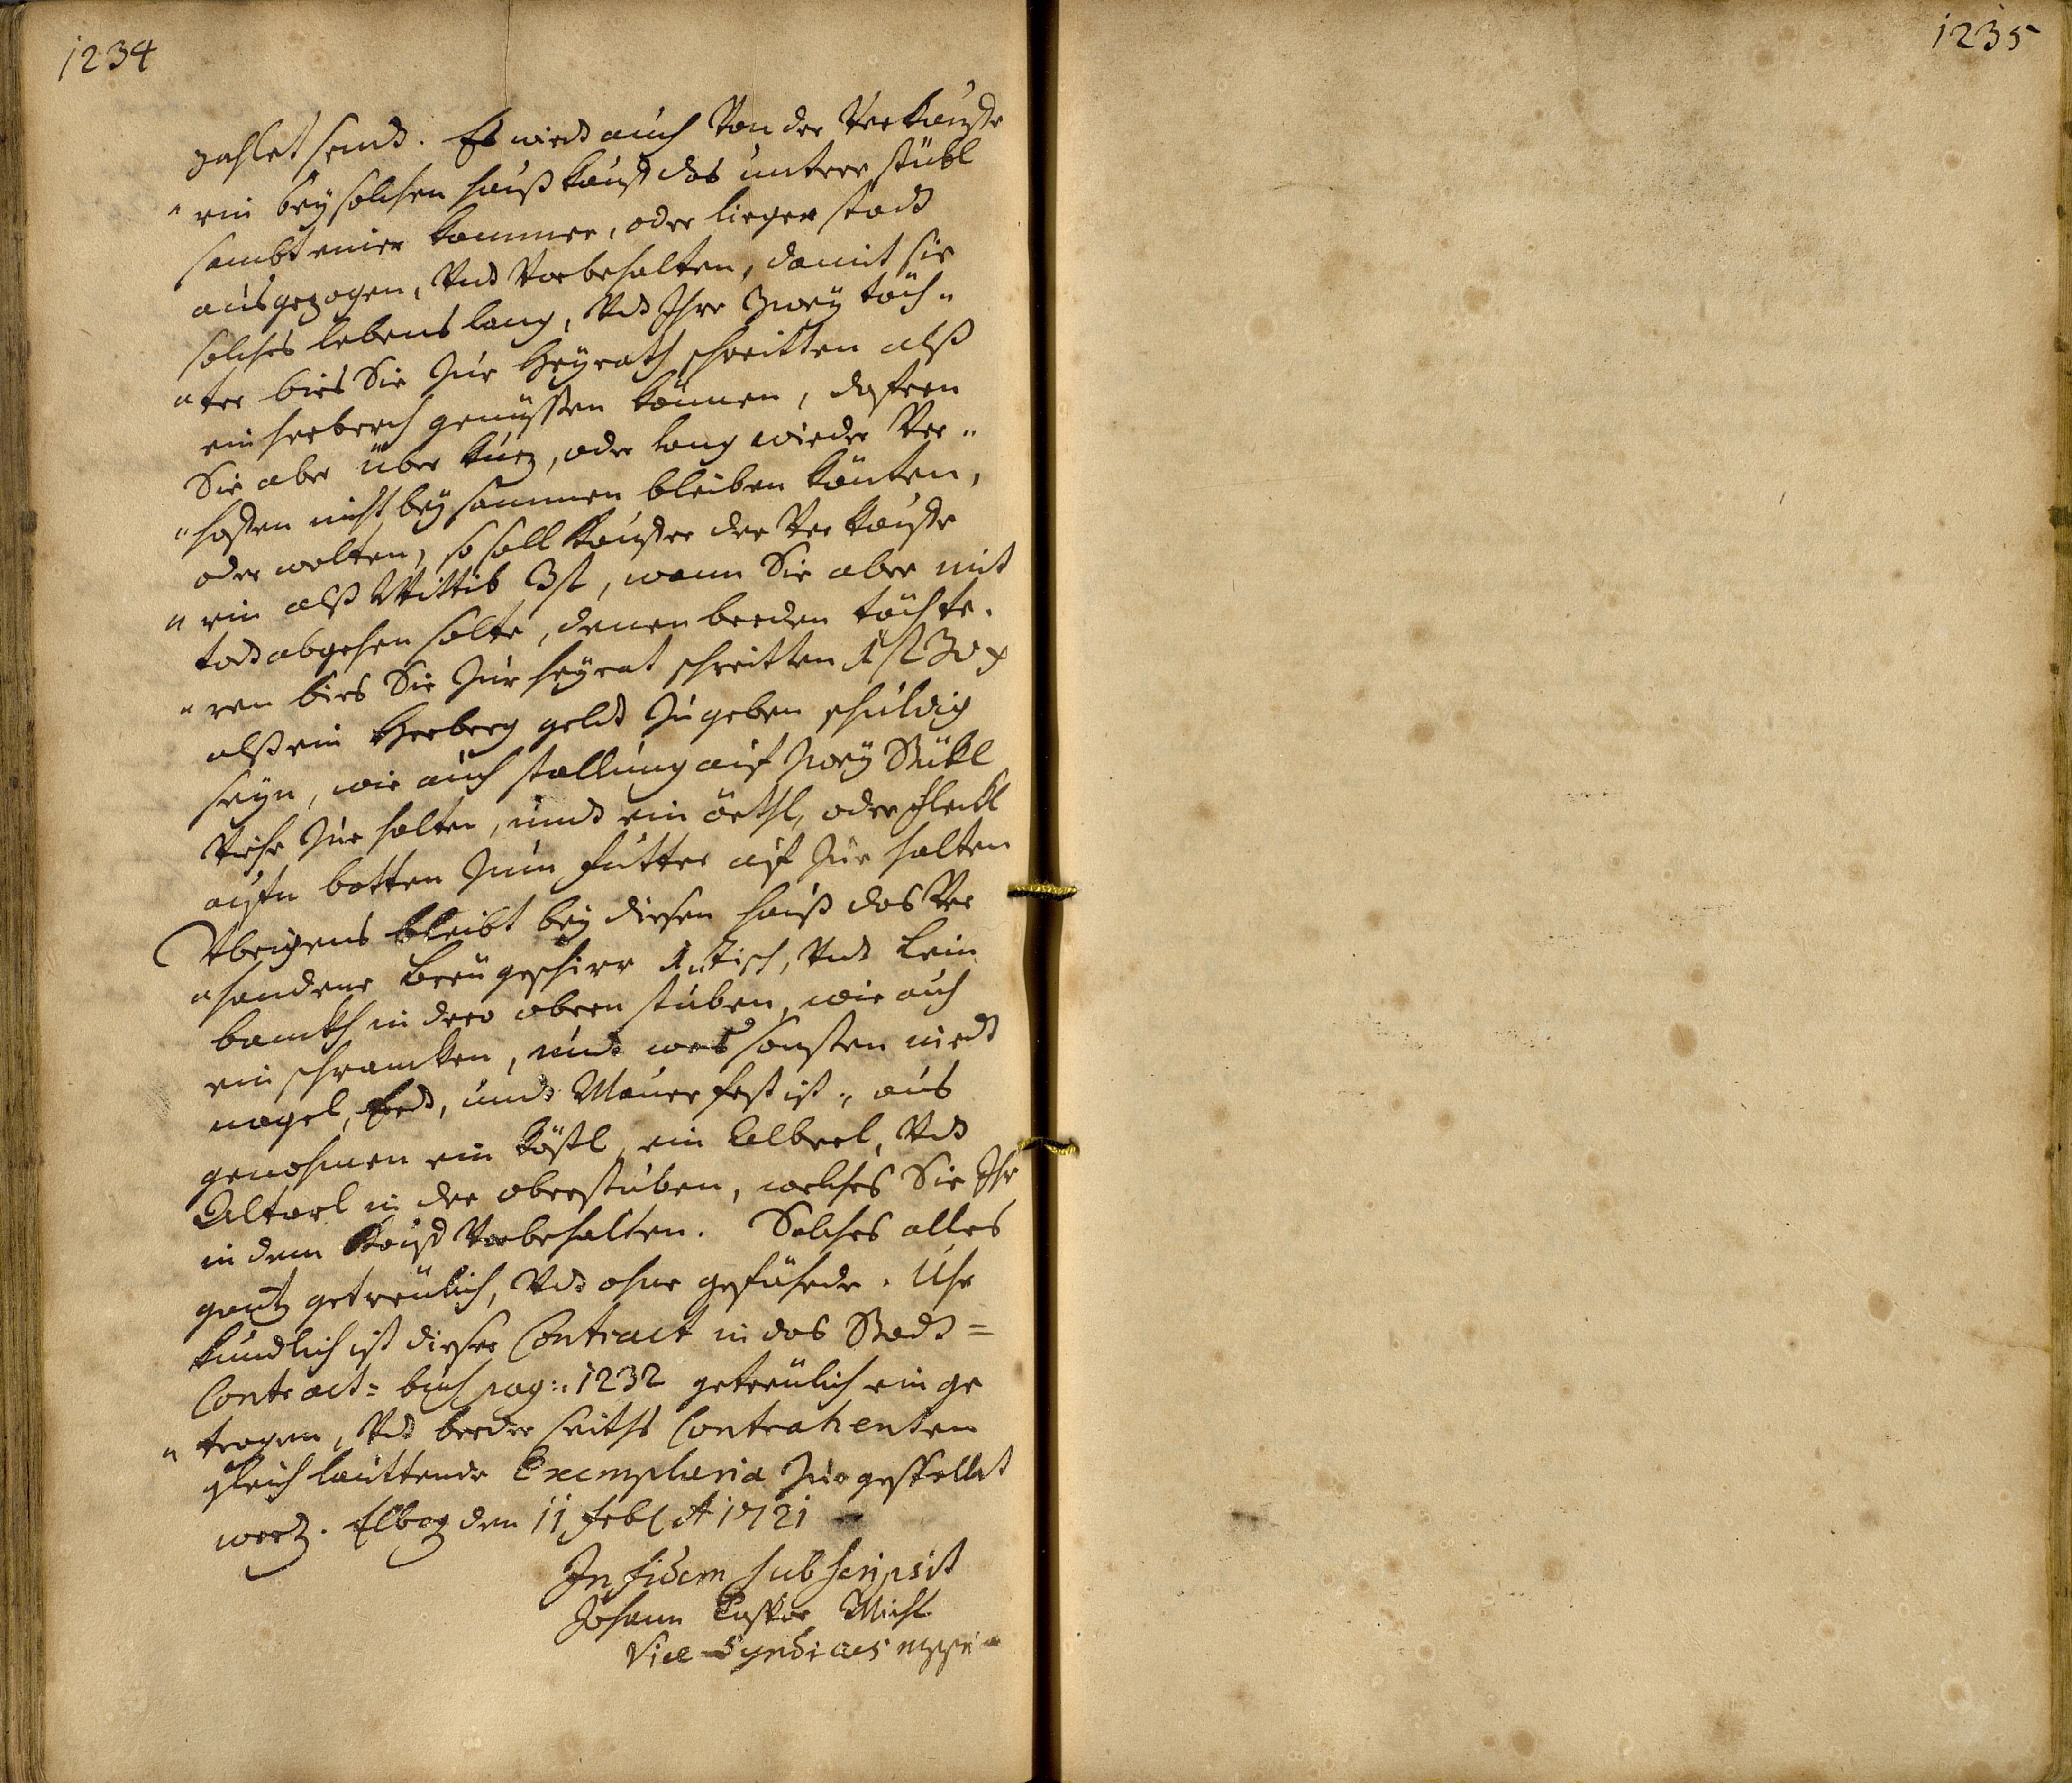 1234
1235
zahlet seind. Es wird auch Von der Verkauffe
„rin bey solchen hauß kauff das untere stübl
sambt einer kammer, oder lieger statt
ausgezogen, Vnd Vorbehalten, damit sie
solches lebens lang, Vnd Ihre Zwey töch„
„ter bies Sie Zur Heyrath schreitten alß
ein herberch genüssen können, dafern
Sie aber über kurtz, oder lang wieder Ver„
„hoffen nicht beysammen bleiben könten,
oder wolten, so soll kauffer der Verkauffe
„rin alß Wittib 3 fl, wann Sie aber mit
todt abgehen solte, denen beeden töchte„
„ren bies Sie Zur heyrat schreitten 1 fl 30 x
alß ein Herberg geld Zugeben schuldig
seyn, wie auch stallung auf Zwey Stükl
Viehe Zur halten, und ein örthl, oder fleckl
aufn botten Zum futter auf Zur halten
Vbrigens bleibt bey diesen hauß das Ver
„handene breugeschirr 1„ Tisch, Vnd Lein
banckh in dero obern stuben, wie auch
ein schrancken, und was sonsten niedt
nagel, Erd, und Mauer fest ist„ aus
genohmen ein köstl, ein Calberl, Vnd
Altarl in der oberstuben, welches Sie Ihr
in dem Kauff Vorbehalten. Solches alles
gantz getreulich, Vnd ohne gefährde. Uhr
kundlich ist dieser Contract in das Stadt=
Contract= buch pag: 1232 getreulich ein ge
„tragen, Vnd beeder seiths Contrahenten
gleich lauttende Exemplaria Zur gestellet
word. Elbog den 11 febl A 1721
In fidem subscripsit
Johann Caspar Michl
Vice Syndicus mppria